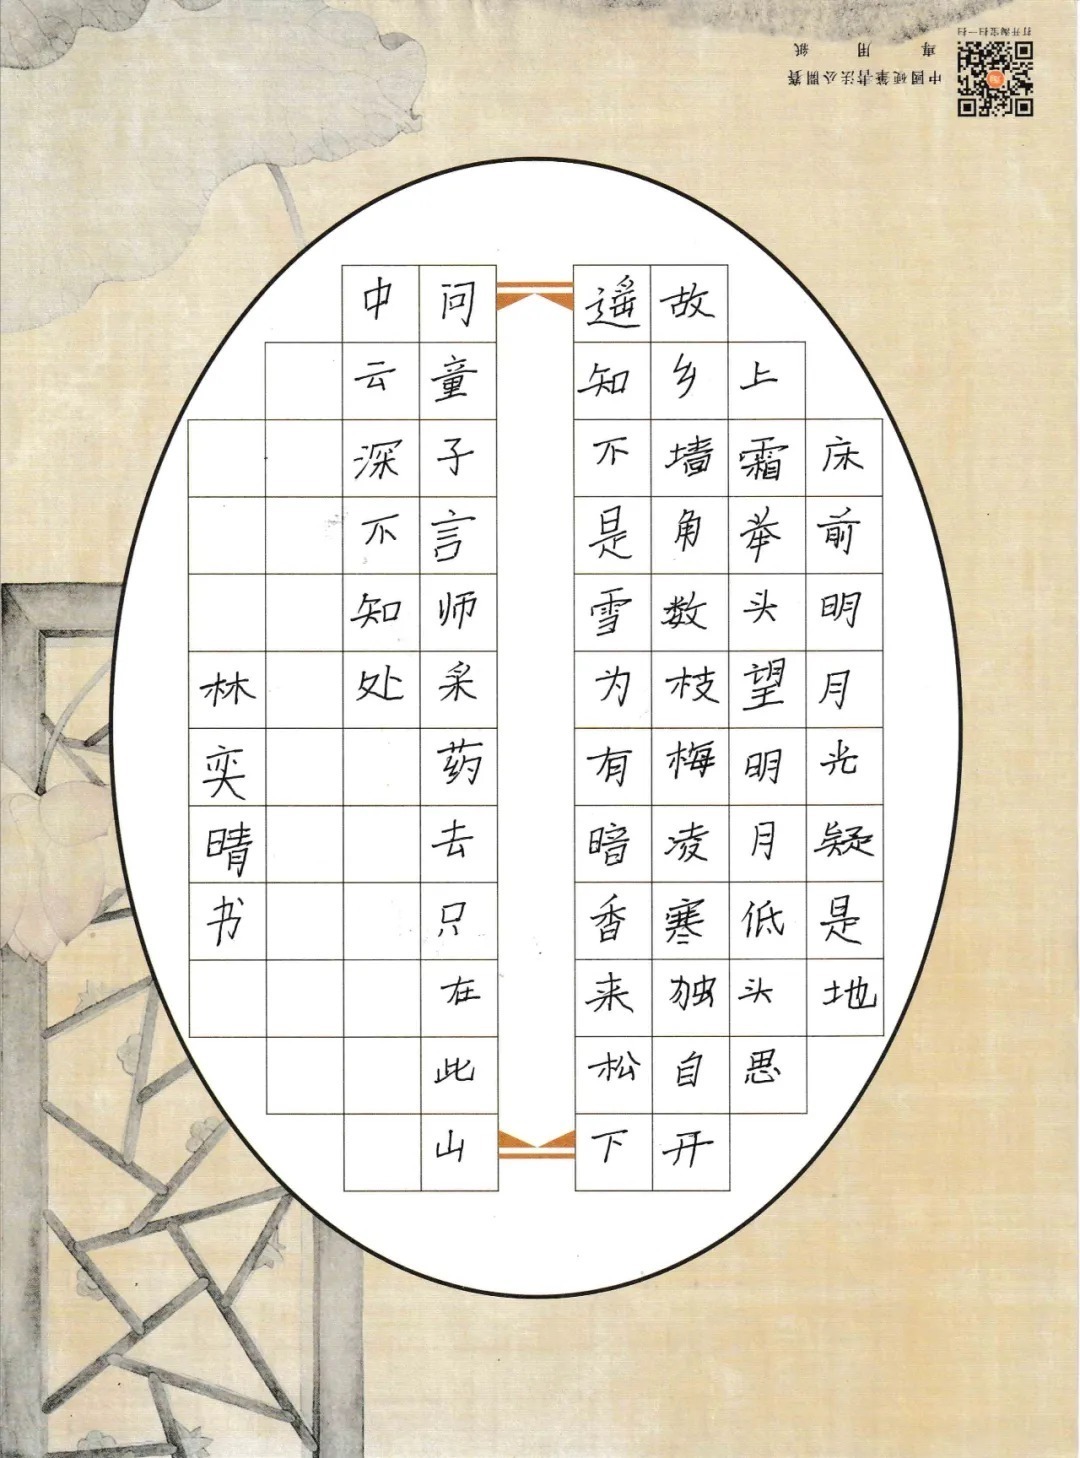 床前明月光疑是地
上霜举头望明月低头思
故乡墙角数枝梅凌寒独自开
遥知不是雪为有暗香来松下
问童子言师采药去只在此山
中云深不知处
林奕晴书
中國硬筆書法公開賽
專用紙
打开淘宝扫一扫